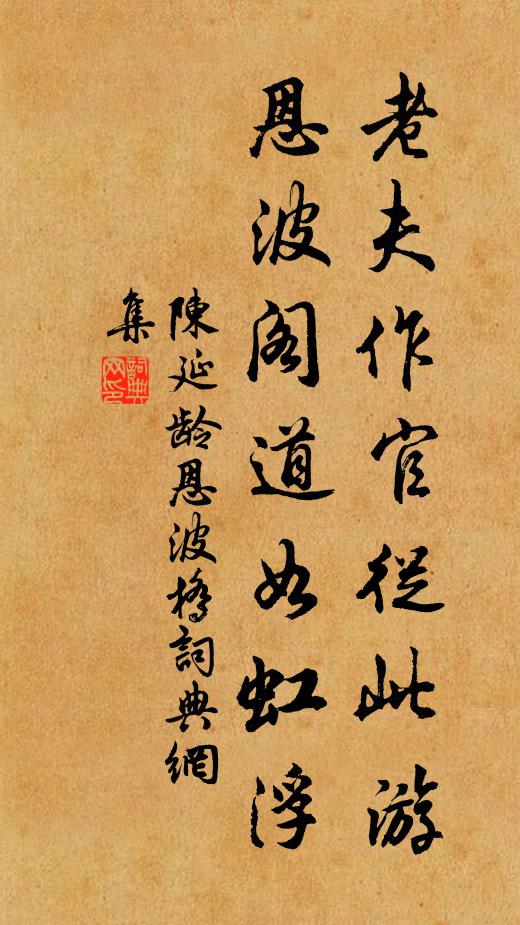 老夫作官從此游
恩波閣道如虹浮
陳延龄恩波橋詞典網
集
詞典网印